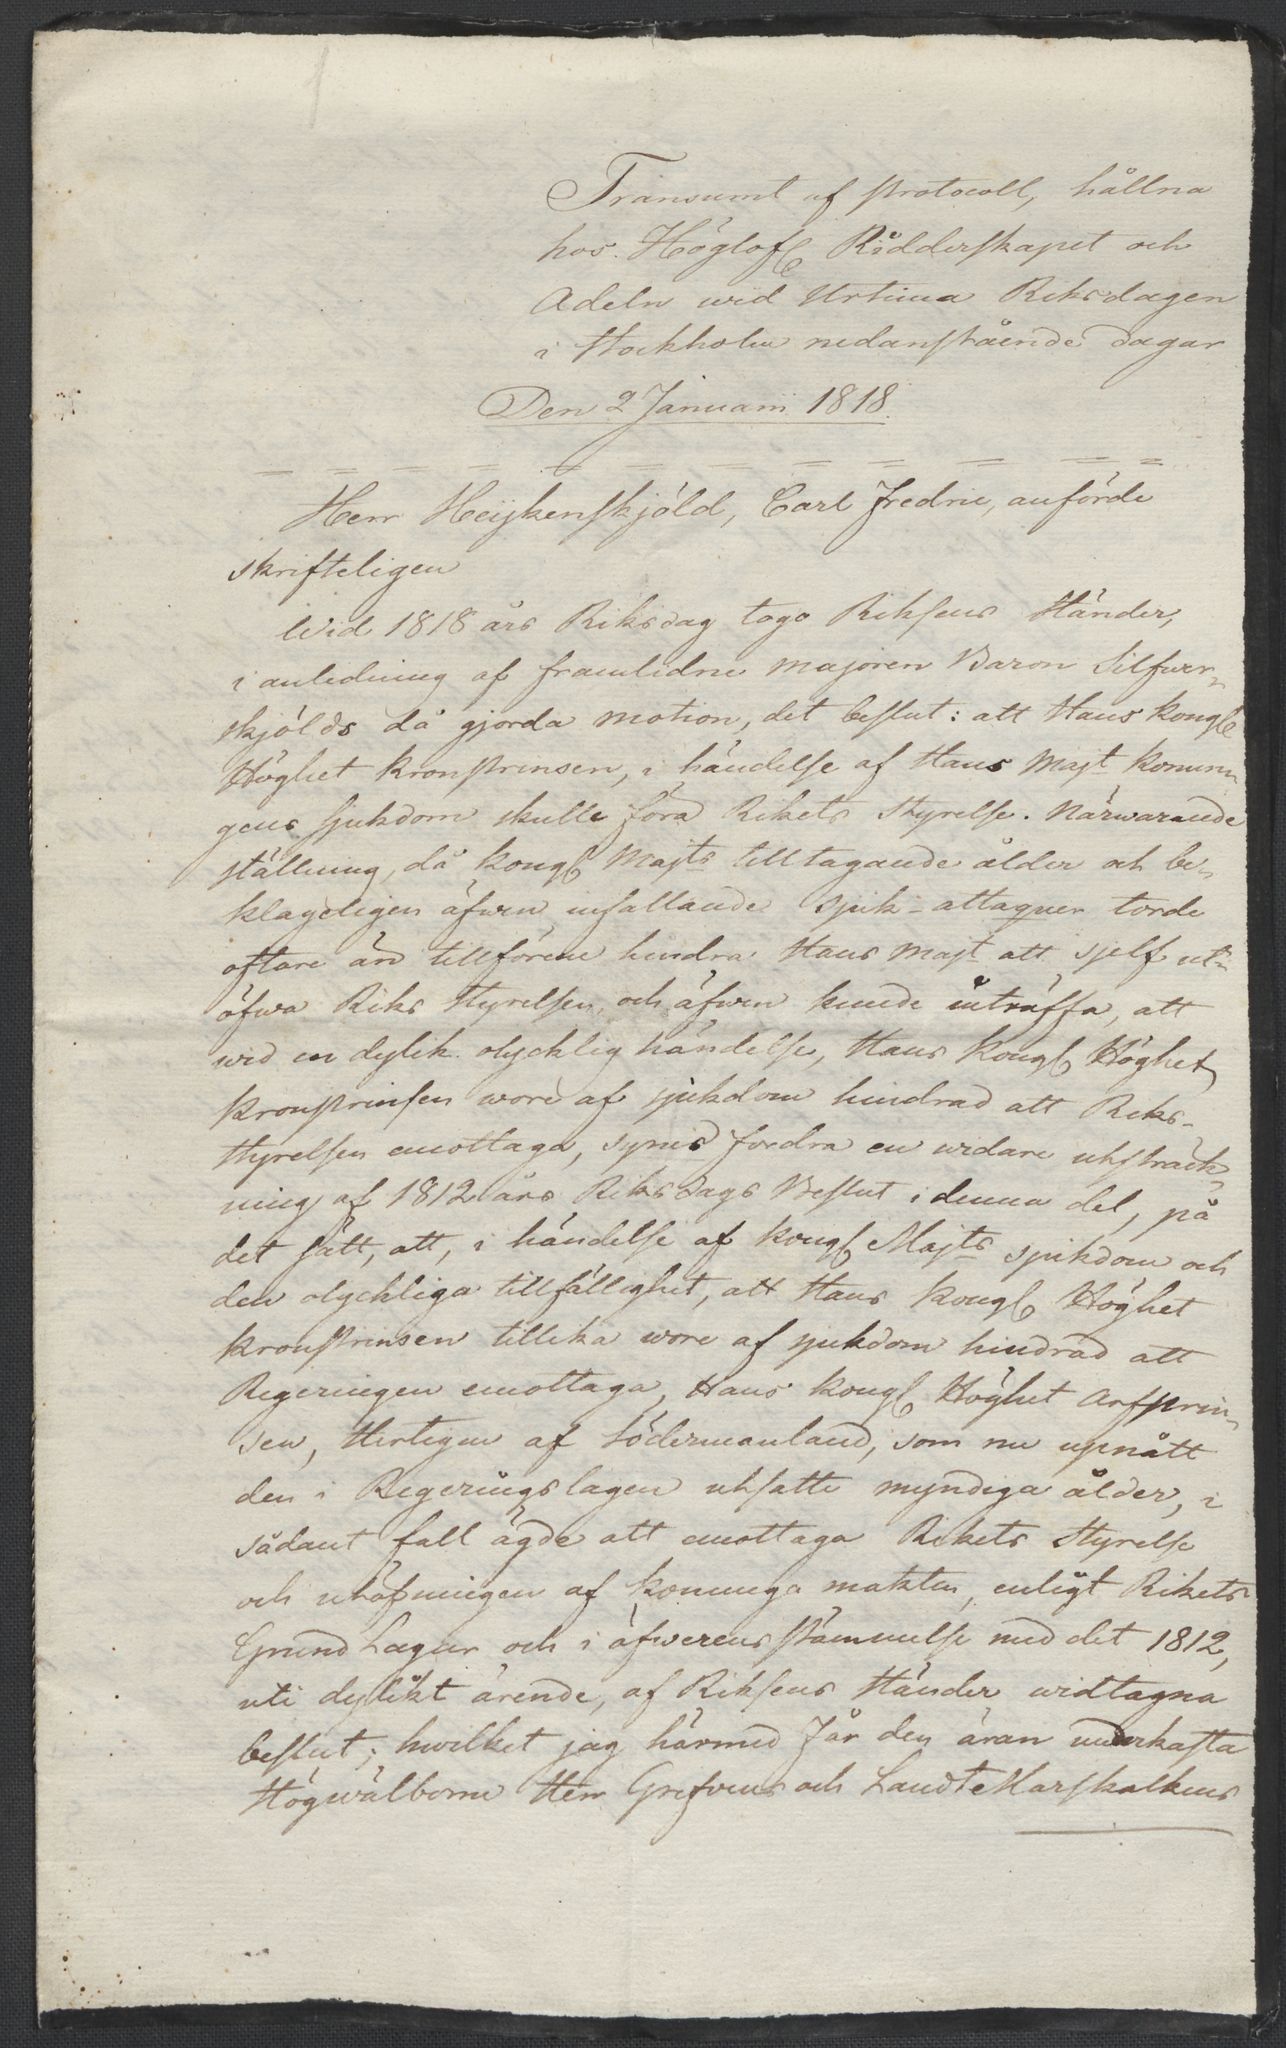 Transumt af Protocoll, hållna
hos Höglofl. Ridderskapet och
Adeln wid Urtima Riksdagen
i Stockholm nedanstående dagar
Den 2 Januarii 1818.
Herr Heijkenskjöld, Carl Fredric, anförde
skrifteligen
Wid 1818 års Riksdag togo Riksens Ständer,
i anledning af framlidne majoren Baron Silfwer-
skjölds då gjorda motion, det beslut: att Hans Kongl.
Höghet Kronprinsen, i händelse af Hans Majt Konun-
gens sjukdom skulle föra Rikets Styrelse. Närwarande
ställning, då Kongl. Majts tilltagande ålder och be-
klageligen äfwen infallande sjuk-attaquer torde
oftare än tillförene hindra Hans Majt att sjelf ut-
öfwa Riks Styrelsen, och äfwen kunde inträffa, att
wid en dylik olycklig händelse, Hans Kongl. Höghet
Kronprinsen wore af sjukdom hindrad att Riks-
Styrelsen emottaga, synes fordra en widare utsträck-
ning af 1812 års Riksdags Beslut i denna del, på
det sätt, att, i händelse af Kongl. Majts sjukdom och
den olyckliga tillfällighet, att Hans Kongl. Höghet
Kronprinsen tillika wore af sjukdom hindrad att
Regeringen emottaga, Hans Kongl. Höghet Arfprin-
sen, Hertigen af Södermanland, som nu upnått
den i Regeringslagen utsatte myndiga ålder, i
sådant fall ägde att emottaga Rikets Styrelse
och utöfningen af Konunga makten, enligt Rikets
Grund Lagar och i öfwerensstämmelse med det 1812,
uti dylikt ärende, af Riksens Ständer widtagna
beslut; hwilket jag härmed får den äran underkasta
Högwälborne Herr Grefwens och LandtMarskalkens